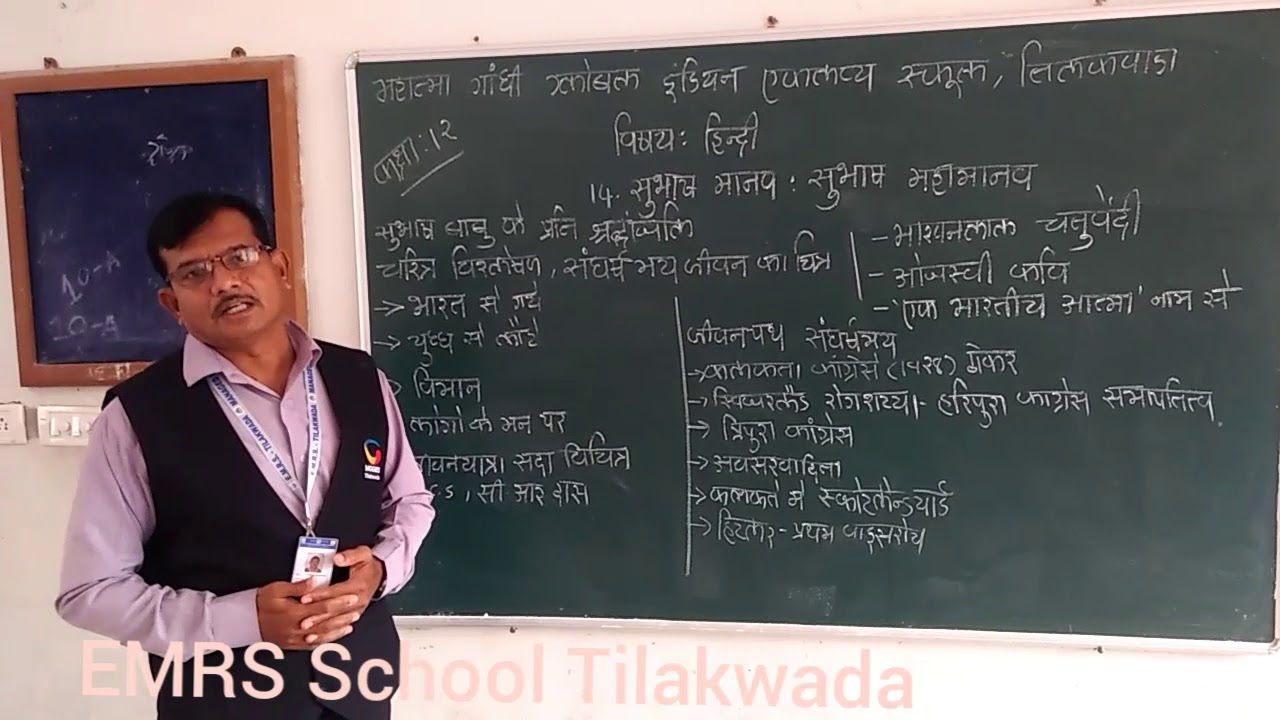 महात्मा गांधी ग्लोबल इंडियन एकलव्य स्कूल, तिलकवाडा
कक्षा: १२
विषय: हिन्दी
14. सुभाष मानव : सुभाष महामानव
सुभाष बाबु के प्रति श्रद्धांजलि
चरित्र विश्लेषण, संघर्षमय जीवन का चित्र
→ भारत से गये
→ युध्ध से लौटे
→ विमान
लोगो के मन पर
जीवनयात्रा सदा विचित्र
C.S, सी आर दास
- माखनलाल चतुर्वेदी
- ओजस्वी कवि
- 'एक भारतीय आत्मा' नाम से
जीवनपथ संघर्षमय
→ कलकत्ता कांग्रेसे (१९२४) होकर
→ स्विप्सरलैंड रोगशय्या - हरिपुरा कांग्रेस सभापतित्व
→ त्रिपुरा कांग्रेस
→ अवसरवादिता
→ कलकत्ते मे स्कोटलेन्डयार्ड
→ हिटलर - प्रथम वाइसरोय
10-A
10-A
E.M.R.S. - TILAKWADA
MANAGED
MGGIES
Tilakwada
EMRS School Tilakwada